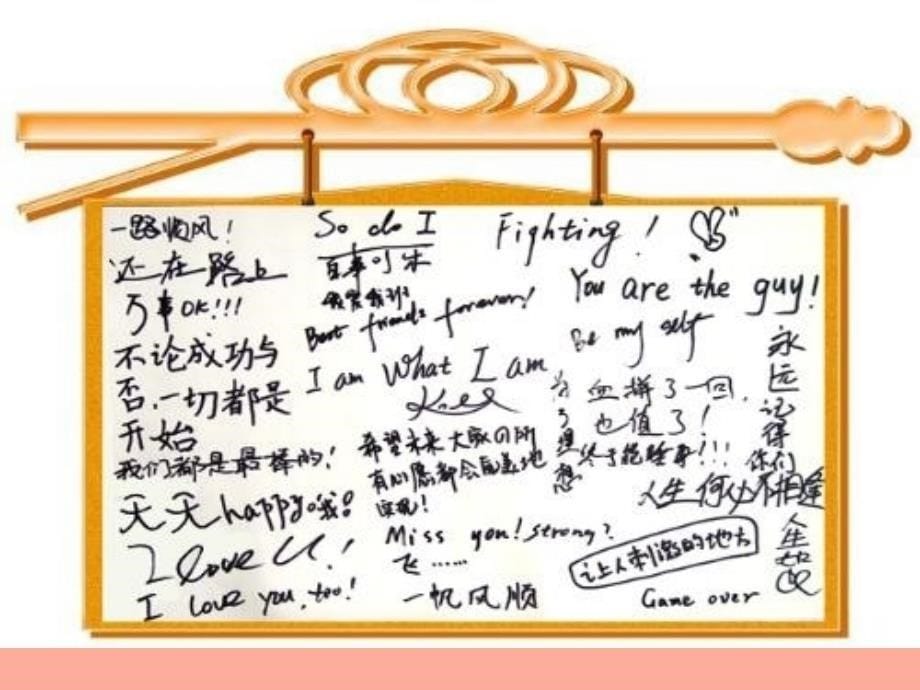 一路顺风!
还在路上
万事OK!!!
不论成功与
否,一切都是
开始
我们都是最棒的!
天天happy哦!
I Love U!
I love you, too!
So do I
Best friends forever!
I am What I am
希望未来大家的所
有心愿都会完美地
实现!
Miss you! strong?
飞……
一帆风顺
Fighting!
You are the guy!
Be my self
为了理想
血拼了一回,
也值了!
终于能睡亭!!!
永远记得你们
人生何处不相逢
人生如
让人刺激的地方
Game over